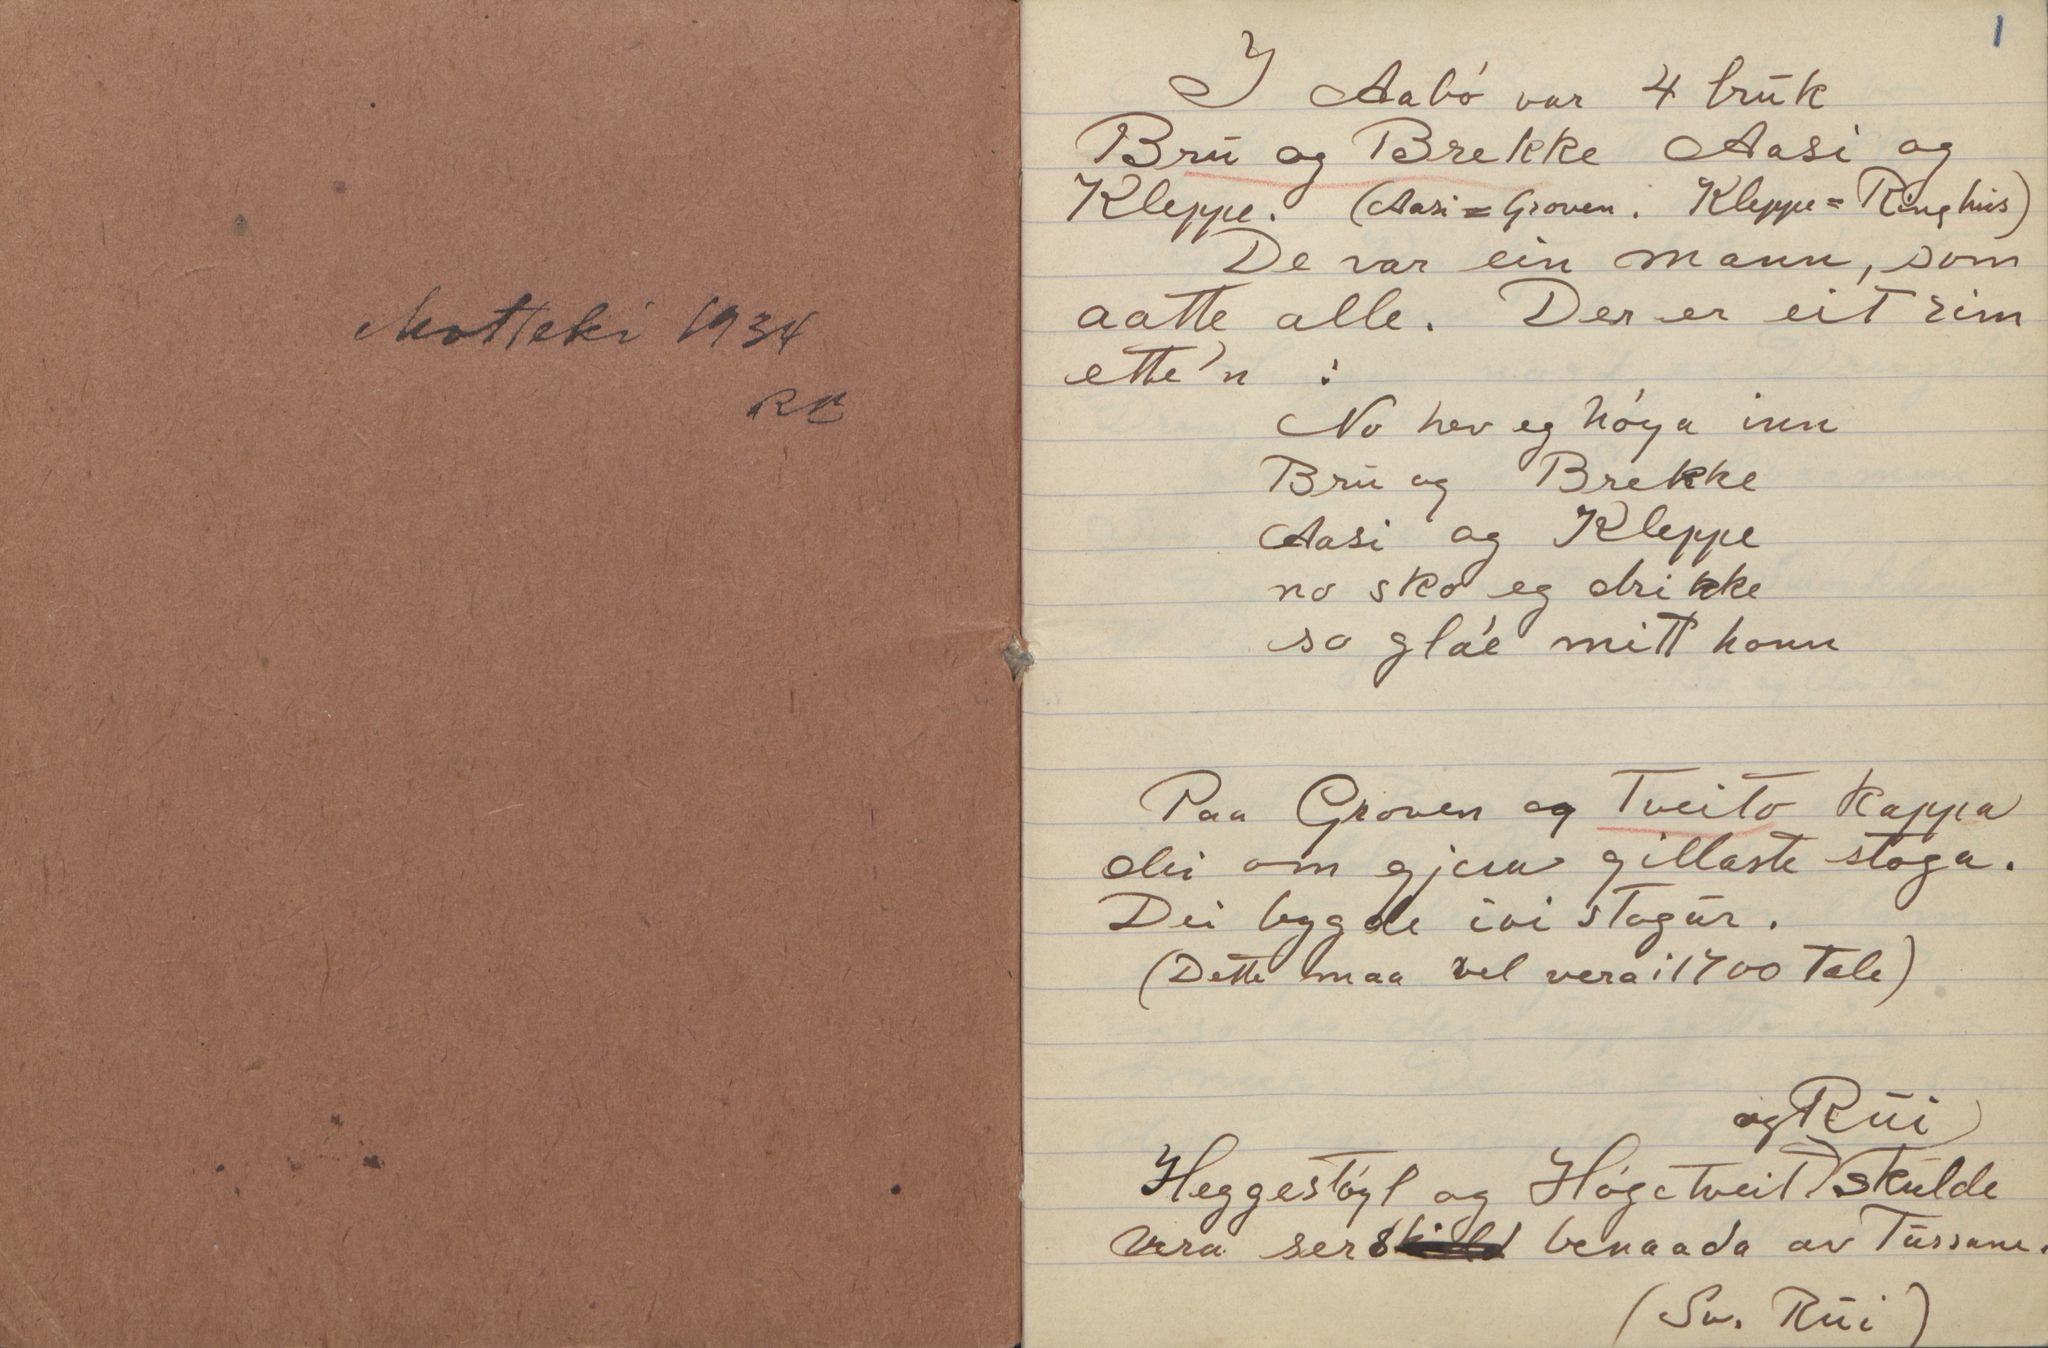 Motteki 1934
RB
1
I Aabó var 4 brŭk
Brŭ og Brekke Aasi og
Kleppe. (Aasi = Groven. Kleppe = Ringhŭs)
De var ein mann, som
aatte alle. Der er eit rim
ette'n :
No hev eg hóya inn
Brŭ og Brekke
Aasi og Kleppe
no sko eg drikke
so gláe mitt honn
Paa Groven og Tveito kappa
dei om gjera gillaste stoga.
Dei bygde ivi stogŭr.
(Dette maa vel vera i 1700 tale)
og Rŭi
Heggestóyl og Hógetveit skŭlde
vera ser benaada av Tŭssane.
(Sv. Rŭi)